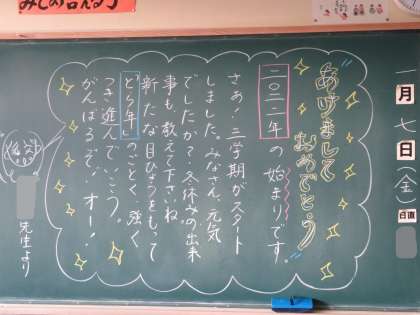 一月七日(金)
日直
あけまして
おめでとう
二〇二二年の始まりです。
さぁ!三学期がスタート
しました。みなさん、元気
でしたか?冬休みの出来
事も教えて下さいね。
新たな目ひょうをもって
とら年のごとく、強く
つき進んでいこう。
がんばるぞ!オー!
先生より